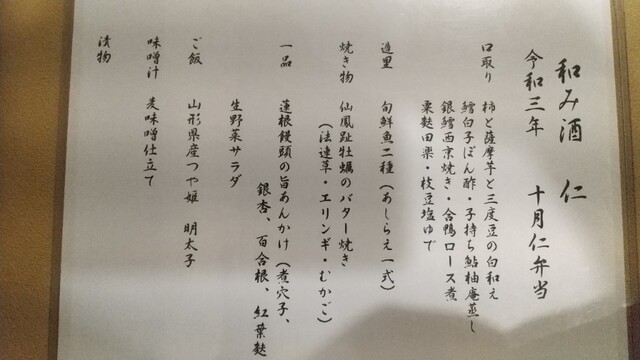 和み酒 仁
令和三年 十月仁弁当
口取り 柿と薩摩芋と三度豆の白和え
鱈白子ぽん酢・子持ち鮎柚庵蒸し
銀鱈西京焼き・合鴨ロース煮
粟麩田楽・枝豆塩ゆで
造里 旬鮮魚二種(あしらえ一式)
焼き物 仙鳳趾牡蠣のバター焼き
(法連草・エリンギ・むかご)
一品 蓮根饅頭の旨あんかけ(煮穴子、
銀杏、百合根、紅葉麩
生野菜サラダ
ご飯 山形県産つや姫 明太子
味噌汁 麦味噌仕立て
漬物